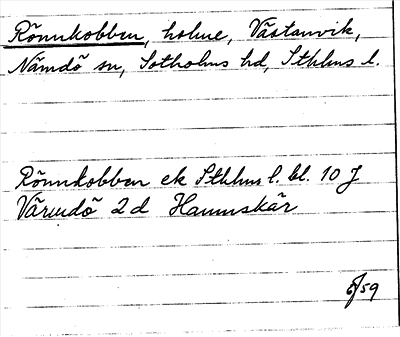 Rönnkobben, holme, Västanvik,
Nämdö sn, Sotholms hd, Sthlms l.
Rönnkobben ek Sthlms l. bl. 10 J
Värmdö 2 d Hamnskär
/59